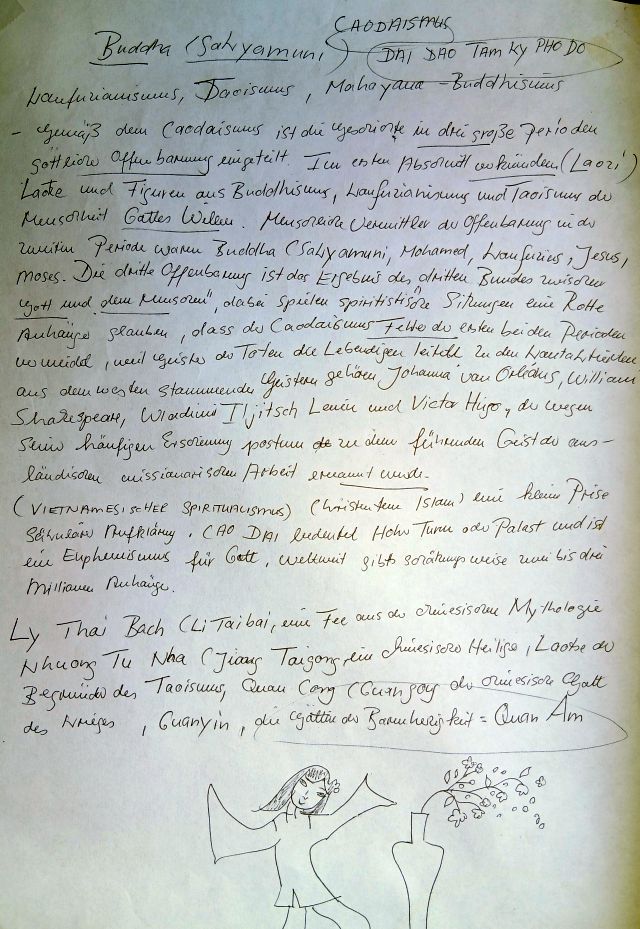 CAODAISMUS
Buddha (Sakyamuni)
DAI DAO TAM KY PHO DO
Konfuzianismus, Daoismus, Mahayana-Buddhismus
- Gemäß dem Caodaismus ist die Geschichte in drei große Perioden
göttliche Offenbarung eingeteilt. Im ersten Abschnitt verkünden (Laozi)
Laotse und Figuren aus Buddhismus, Konfuzianismus und Taoismus der
Menschheit Gottes Willen. Menschliche Vermittler der Offenbarung in der
zweiten Periode waren Buddha (Sakyamuni, Mohamed, Konfuzius, Jesus,
Moses. Die dritte Offenbarung ist das Ergebnis des „dritten Bundes zwischen
Gott und dem Menschen", dabei spielen spiritistische Sitzungen eine Rolle
Anhänger glauben, dass der Caodaismus Fehler der ersten beiden Perioden
vermeidet, weil Geister der Toten die Lebendigen leiten. Zu den
aus dem Westen stammenden Geistern gehören Johanna van Orleans, William
Shakespeare, Wladimir Iljitsch Lenin und Victor Hugo, der wegen
seiner häufigen Erscheinung postum zu dem führenden Geist der aus-
ländischen missionarischen Arbeit ernannt wurde.
(VIETNAMESISCHER SPIRITUALISMUS) (Christentum Islam) eine kleine Prise
Säkulare Aufklärung. CAO DAI bedeutet Hoher Turm oder Palast und ist
ein Euphemismus für Gott, weltweit gibts schätzungsweise zwei bis drei
Millionen Anhänger.
Ly Thai Bach (Li Taibai, eine Fee aus der chinesischen Mythologie
Khuong Tu Nha (Jiang Taigong, ein chinesischer Heiliger, Laotse der
Begründer des Taoismus, Quan Cong (Guangong der chinesische Gott
des Krieges, Guanyin, die Göttin der Barmherzigkeit = Quan Am